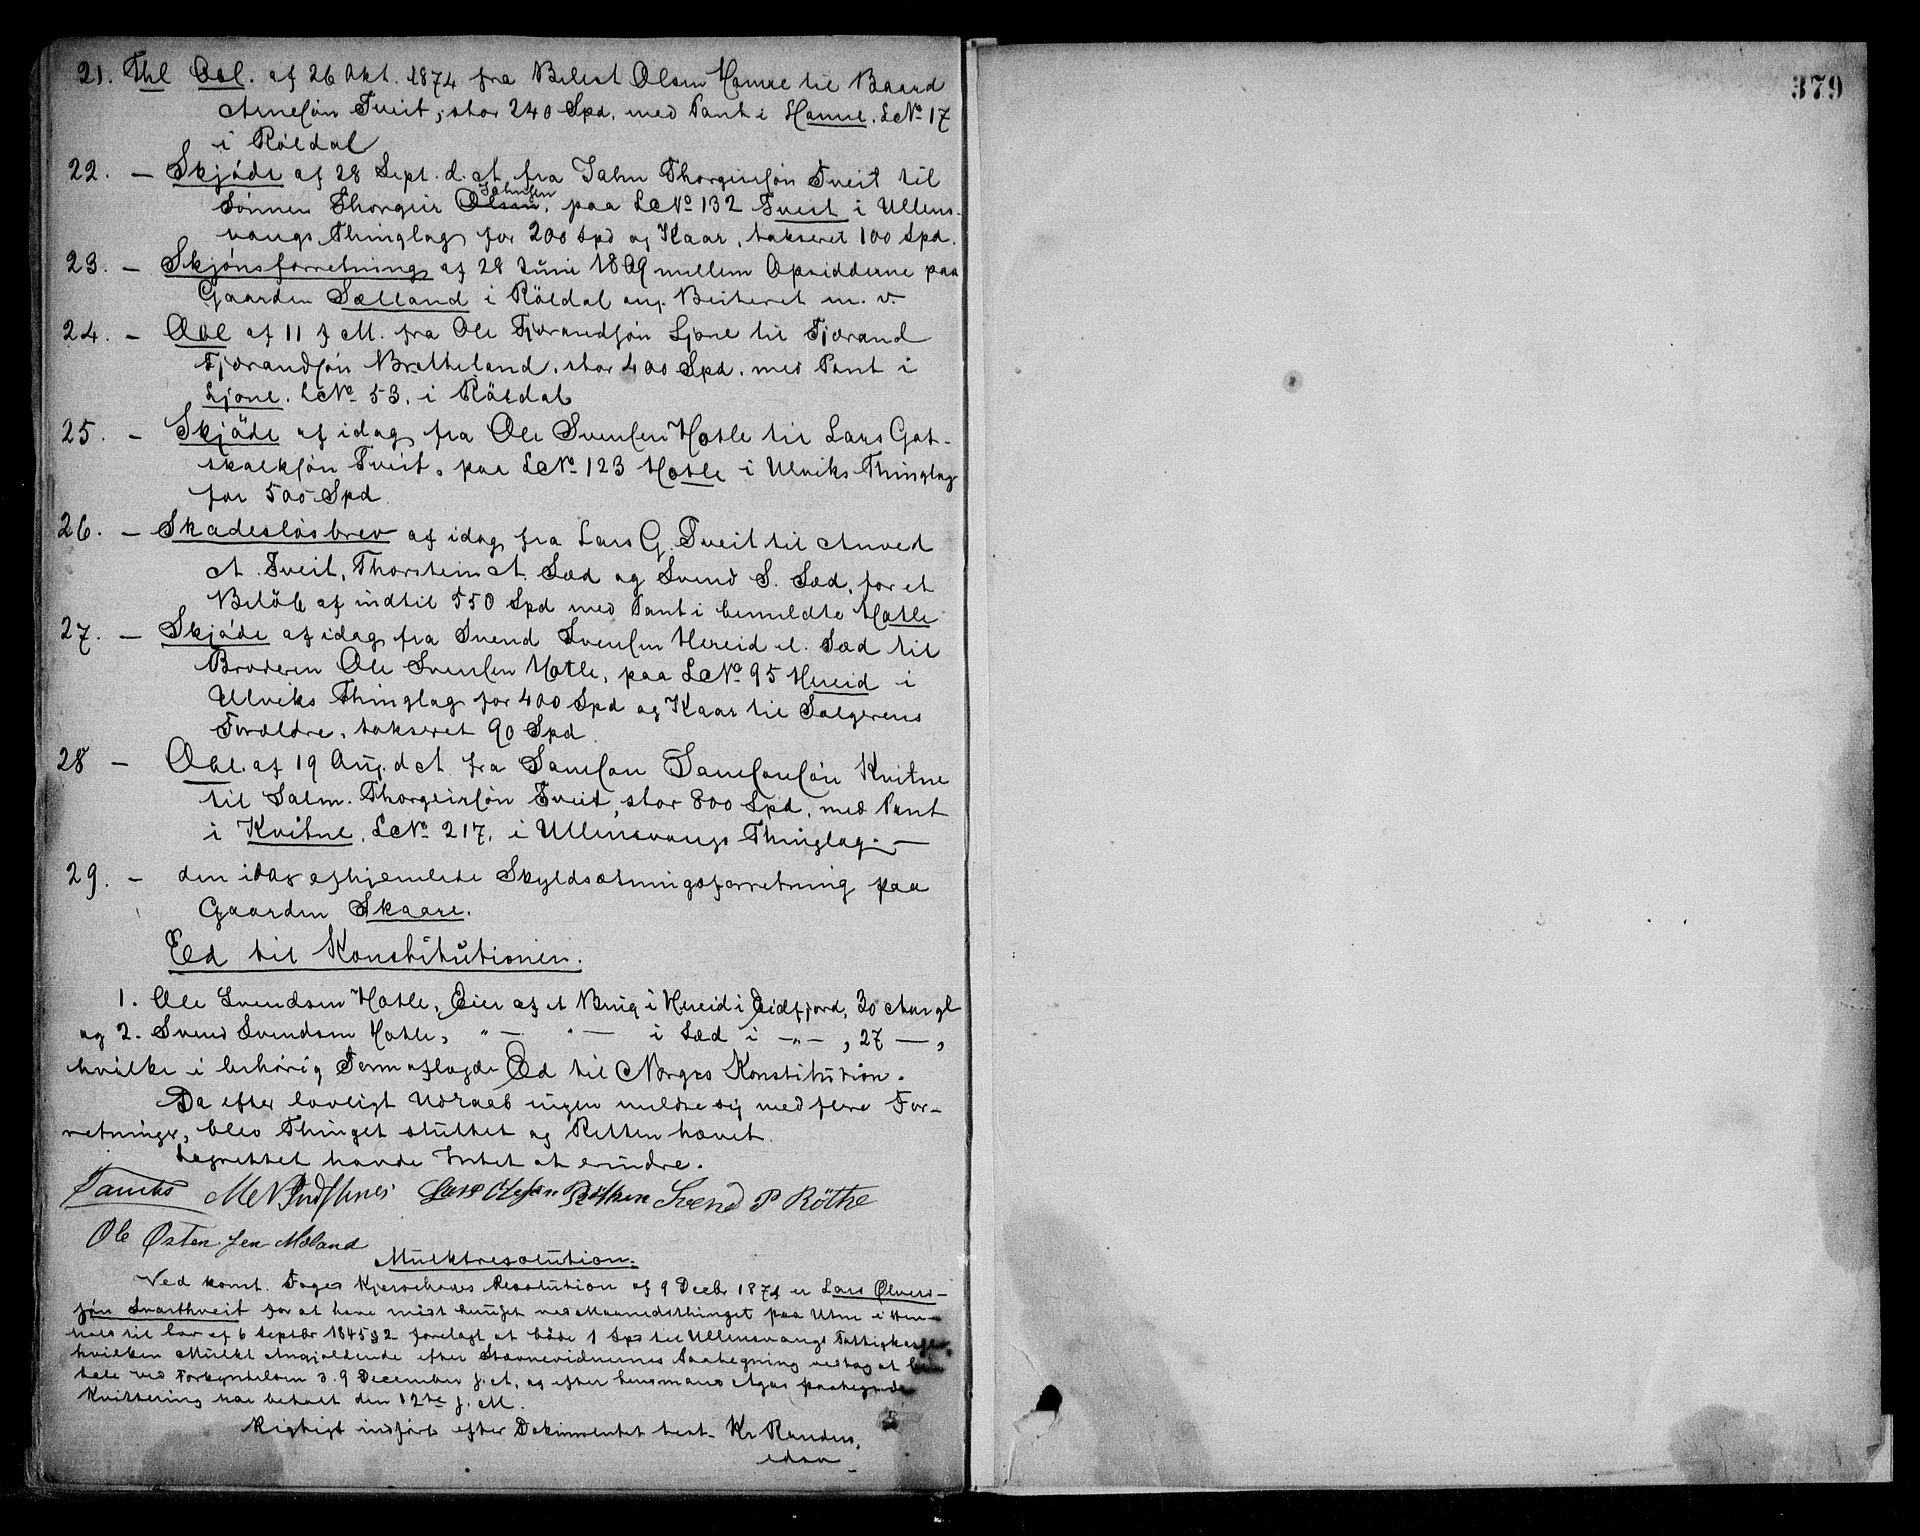 21. Thl Obl. af 26 Okt. 1874 fra Olsen Hamre til Baard
Arnesøn Tveit, stor 240 Spd. med Pant i Hamre, LNo 17
i Röldal
22. — Skjøde af 28 Sept. d. A. fra Salm Thorgeirsøn Tveit til
Sønnen Thorgeir Olsen, Salmsen paa LNo 132 Tveit i Ullens-
vangs Thinglag for 200 Spd og Kaar, takseret 100 Spd.
23. — Skjønsforretning af 28 Juni 1809 mellem Opsidderne paa
Gaarden Sælland i Röldal ang. Beiteret m. v.
24. — Obl af 11 f. M. fra Ole Fjærandsøn Ljone til Fjærand
Fjærandsøn Bratteland, stor 400 Spd. med Pant i
Ljone, LNo 53, i Röldal
25. — Skjöde af idag fra Ole Svensen Hatle til Lars Got-
skalksøn Tveit, paa LNo 123 Hatle i Ulviks Thinglag
for 500 Spd
26. — Skadesløsbrev af idag fra Lars G. Tveit til Anved
A. Tveit, Thorstein A. Sæd og Svend S. Sæd, for et
Beløb af indtil 550 Spd med Pant i bemeldte Hatle
27. — Skjøde af idag fra Svend Svensen Hereid el. Sæd til
Broderen Ole Svensen Hatle, paa LNo 95 Hereid i
Ulviks Thinglag for 400 Spd og Kaar til Sælgerens
Forældre, takseret 90 Spd
28 — Obl. af 19 Aug. d A. fra Samson Samsonsøn Kvitne
til Salm. Thorgeirsøn Tveit, stor 800 Spd, med Pant
i Kvitne, LNo 217, i Ullensvangs Thinglag. —
29. — den idag afhjemlede Skyldsætningsforretning paa
Gaarden Skaare.
Ed til Konstitutionen.
1. Ole Svendsen Hatle, Eier af et Brug i Hereid i Eidfjord, 30 Aar gl
og 2. Svend Svendsen Hatle, " — " — i Sæd i —"—, 27 —,
hvilke i behørig Form aflagde Ed til Norges Konstitution.
Da efter lovligt Udraab ingen meldte sig med flere For-
retninger, blev Thinget sluttet og Retten hævet.
Lagrettet havde Intet at erindre.
Lars Olsen Røthe Svend P Röthe
Ole Østensen Mæland
Mulktresolution.
Ved konst. Foged Resolution af 9 Decbr 1874 er Lars Olvers-
søn Svarthveit for at have været beruset ved Maanedsthinget paa Utne i Hen-
hold til Lov af 6 Septbr 1845 § 2 forelagt at bøde 1 Spd til Ullensvangs Fattigkasse,
hvilken Mulkt Angjældende efter Stævnevidnernes Paategning vedtog at be-
tale ved Forkyndelsen d. 9 December f. A, og efter Lensmand Agas paategnede
Kvittering har betalt den 12te f. M.
Rigtigt indført efter Dokumentet test. Kr Randers,
edsv
379